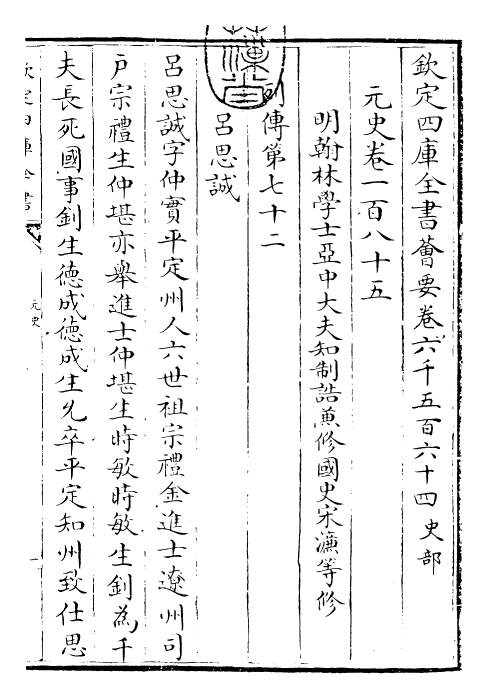 欽定四庫全書薈要卷六千五百六十四史部
元史卷一百八十五
明翰林學士亞中大夫知制誥兼修國史宋濂等修
列傳第七十二
呂思誠
呂思誠字仲實平定州人六世祖宗禮金進士遼州司
戶宗禮生仲堪亦舉進士仲堪生時敏時敏生釗為千
夫長死國事釗生德成德成生允卒平定知州致仕思
欽定四庫全書
元史